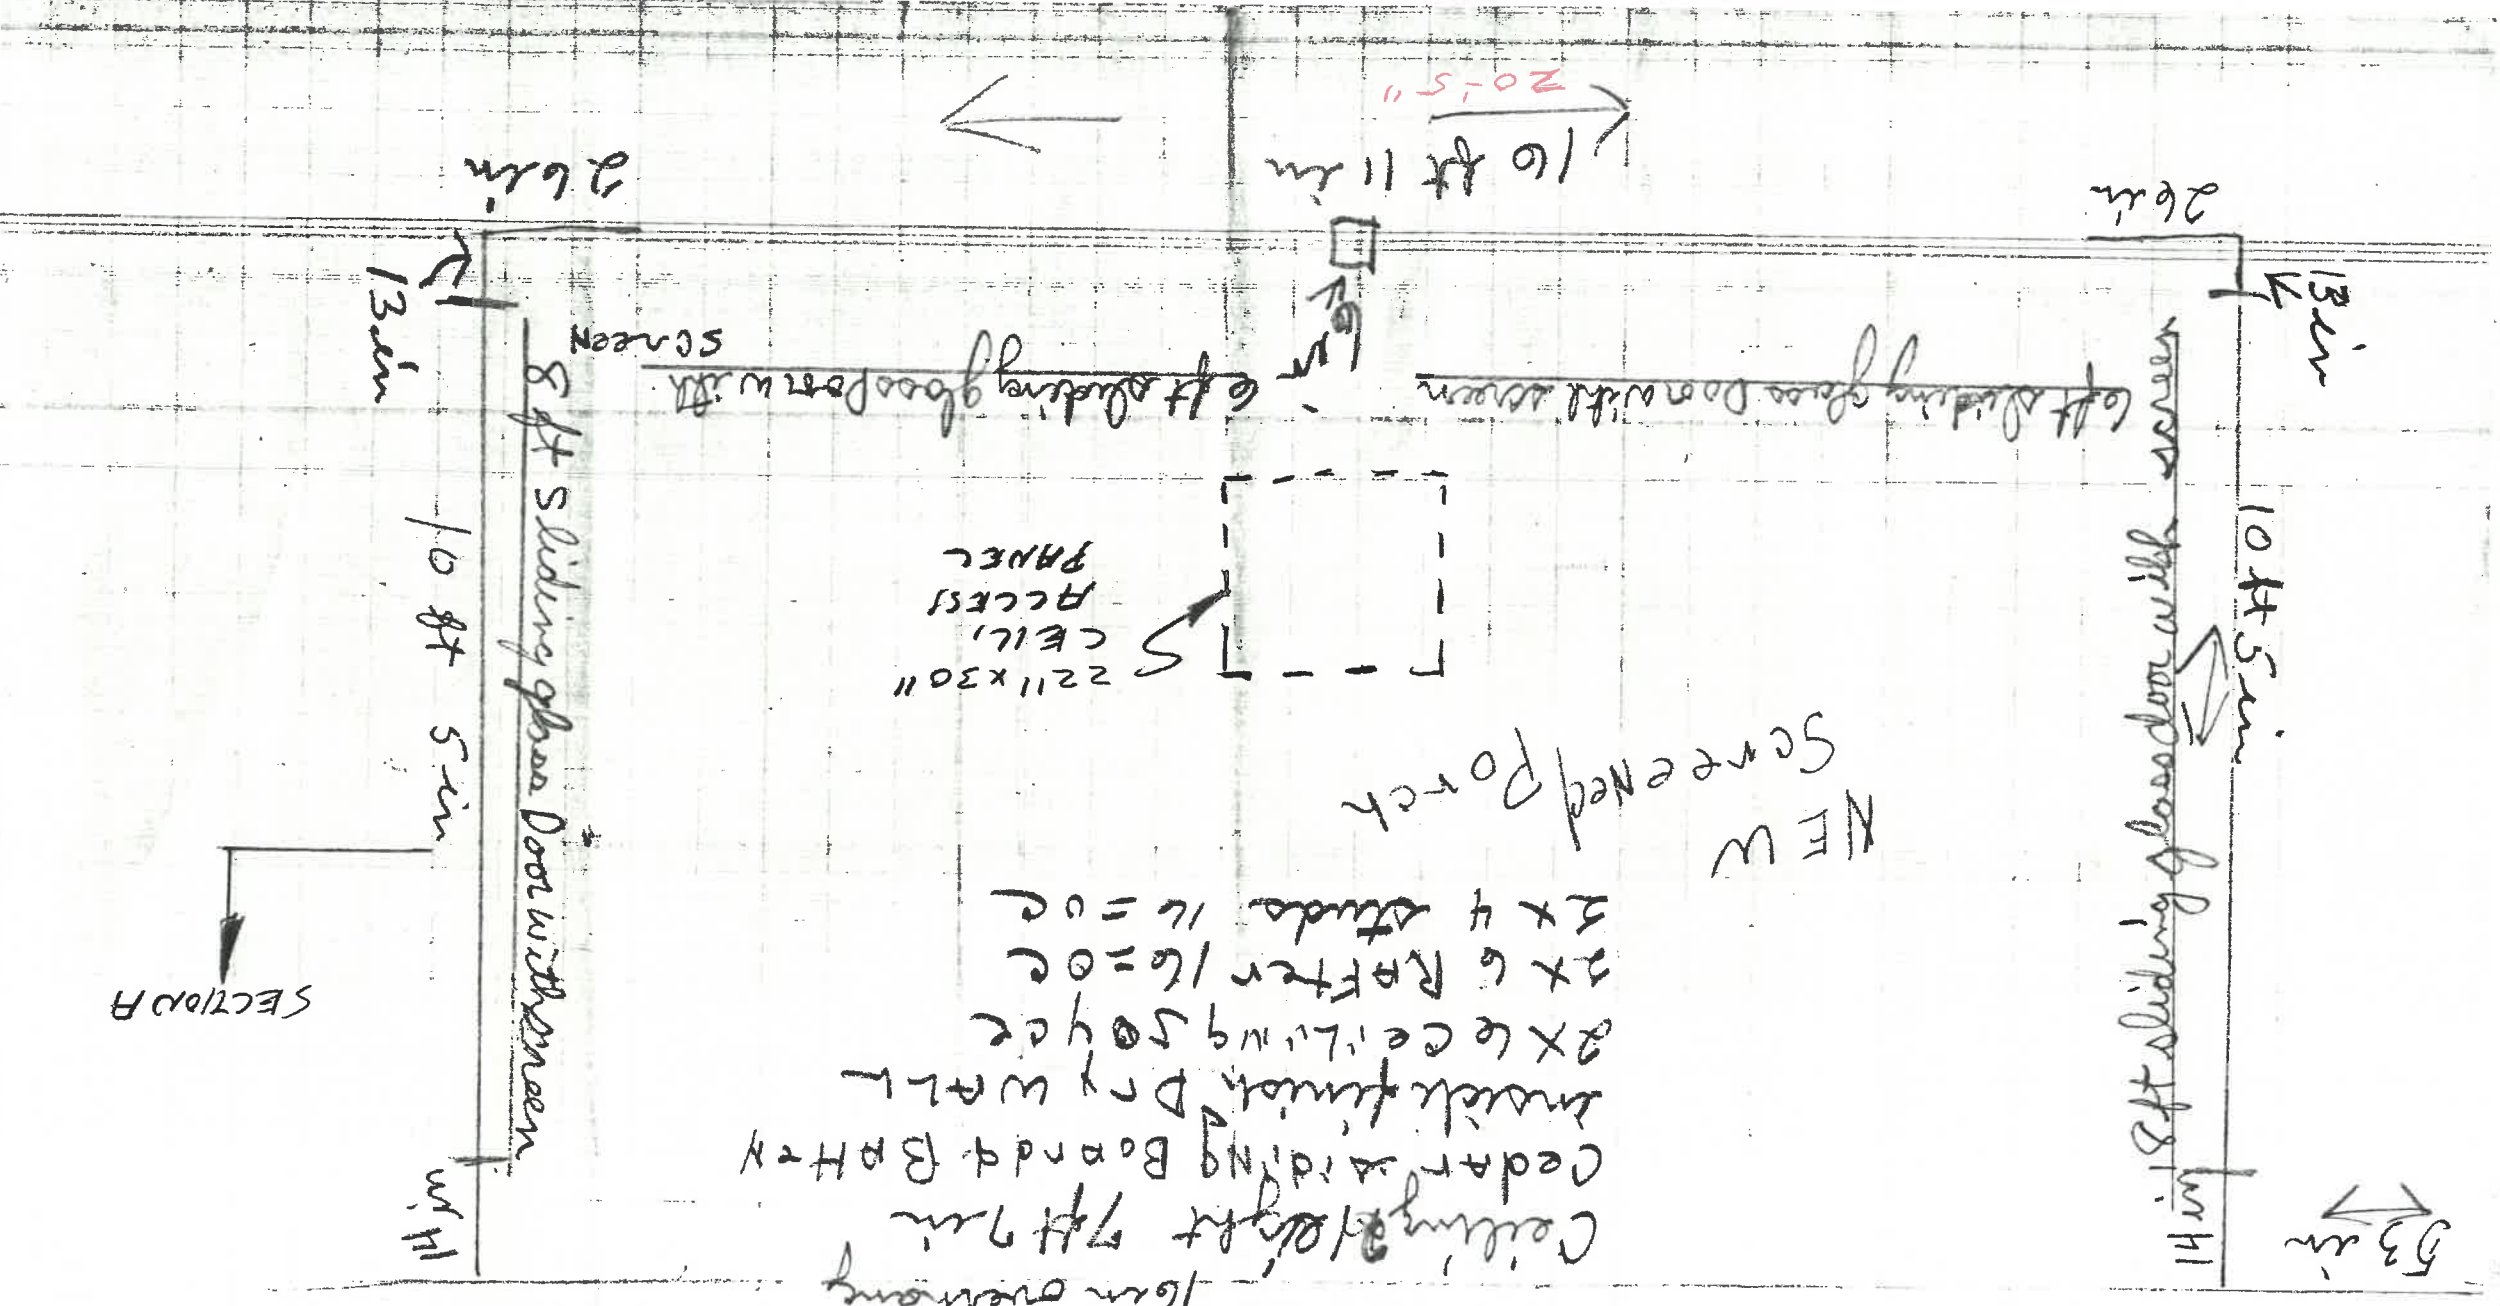 16in overhang
Ceiling Height 7ft 7in
Cedar siding Board BATTEN
inside finish Dry WALL
2x6 CeiLiNg JoyCe
2x6 RAFTer 16=0C
2x4 studs 16=0C
NEW
ScreeNed Porch
22"x30"
CEIL,
ACCESS
PANEL
53 in
14 in
8ft sliding glass door with screen
10ft 5in
13in
26in
6ft sliding glass Door with screen
6in
6ft sliding glass Door with
screen
16 ft 11 in
20-5"
26in
13in
8ft Sliding glass Door with screen
10 ft 5 in
14in
SECTION A